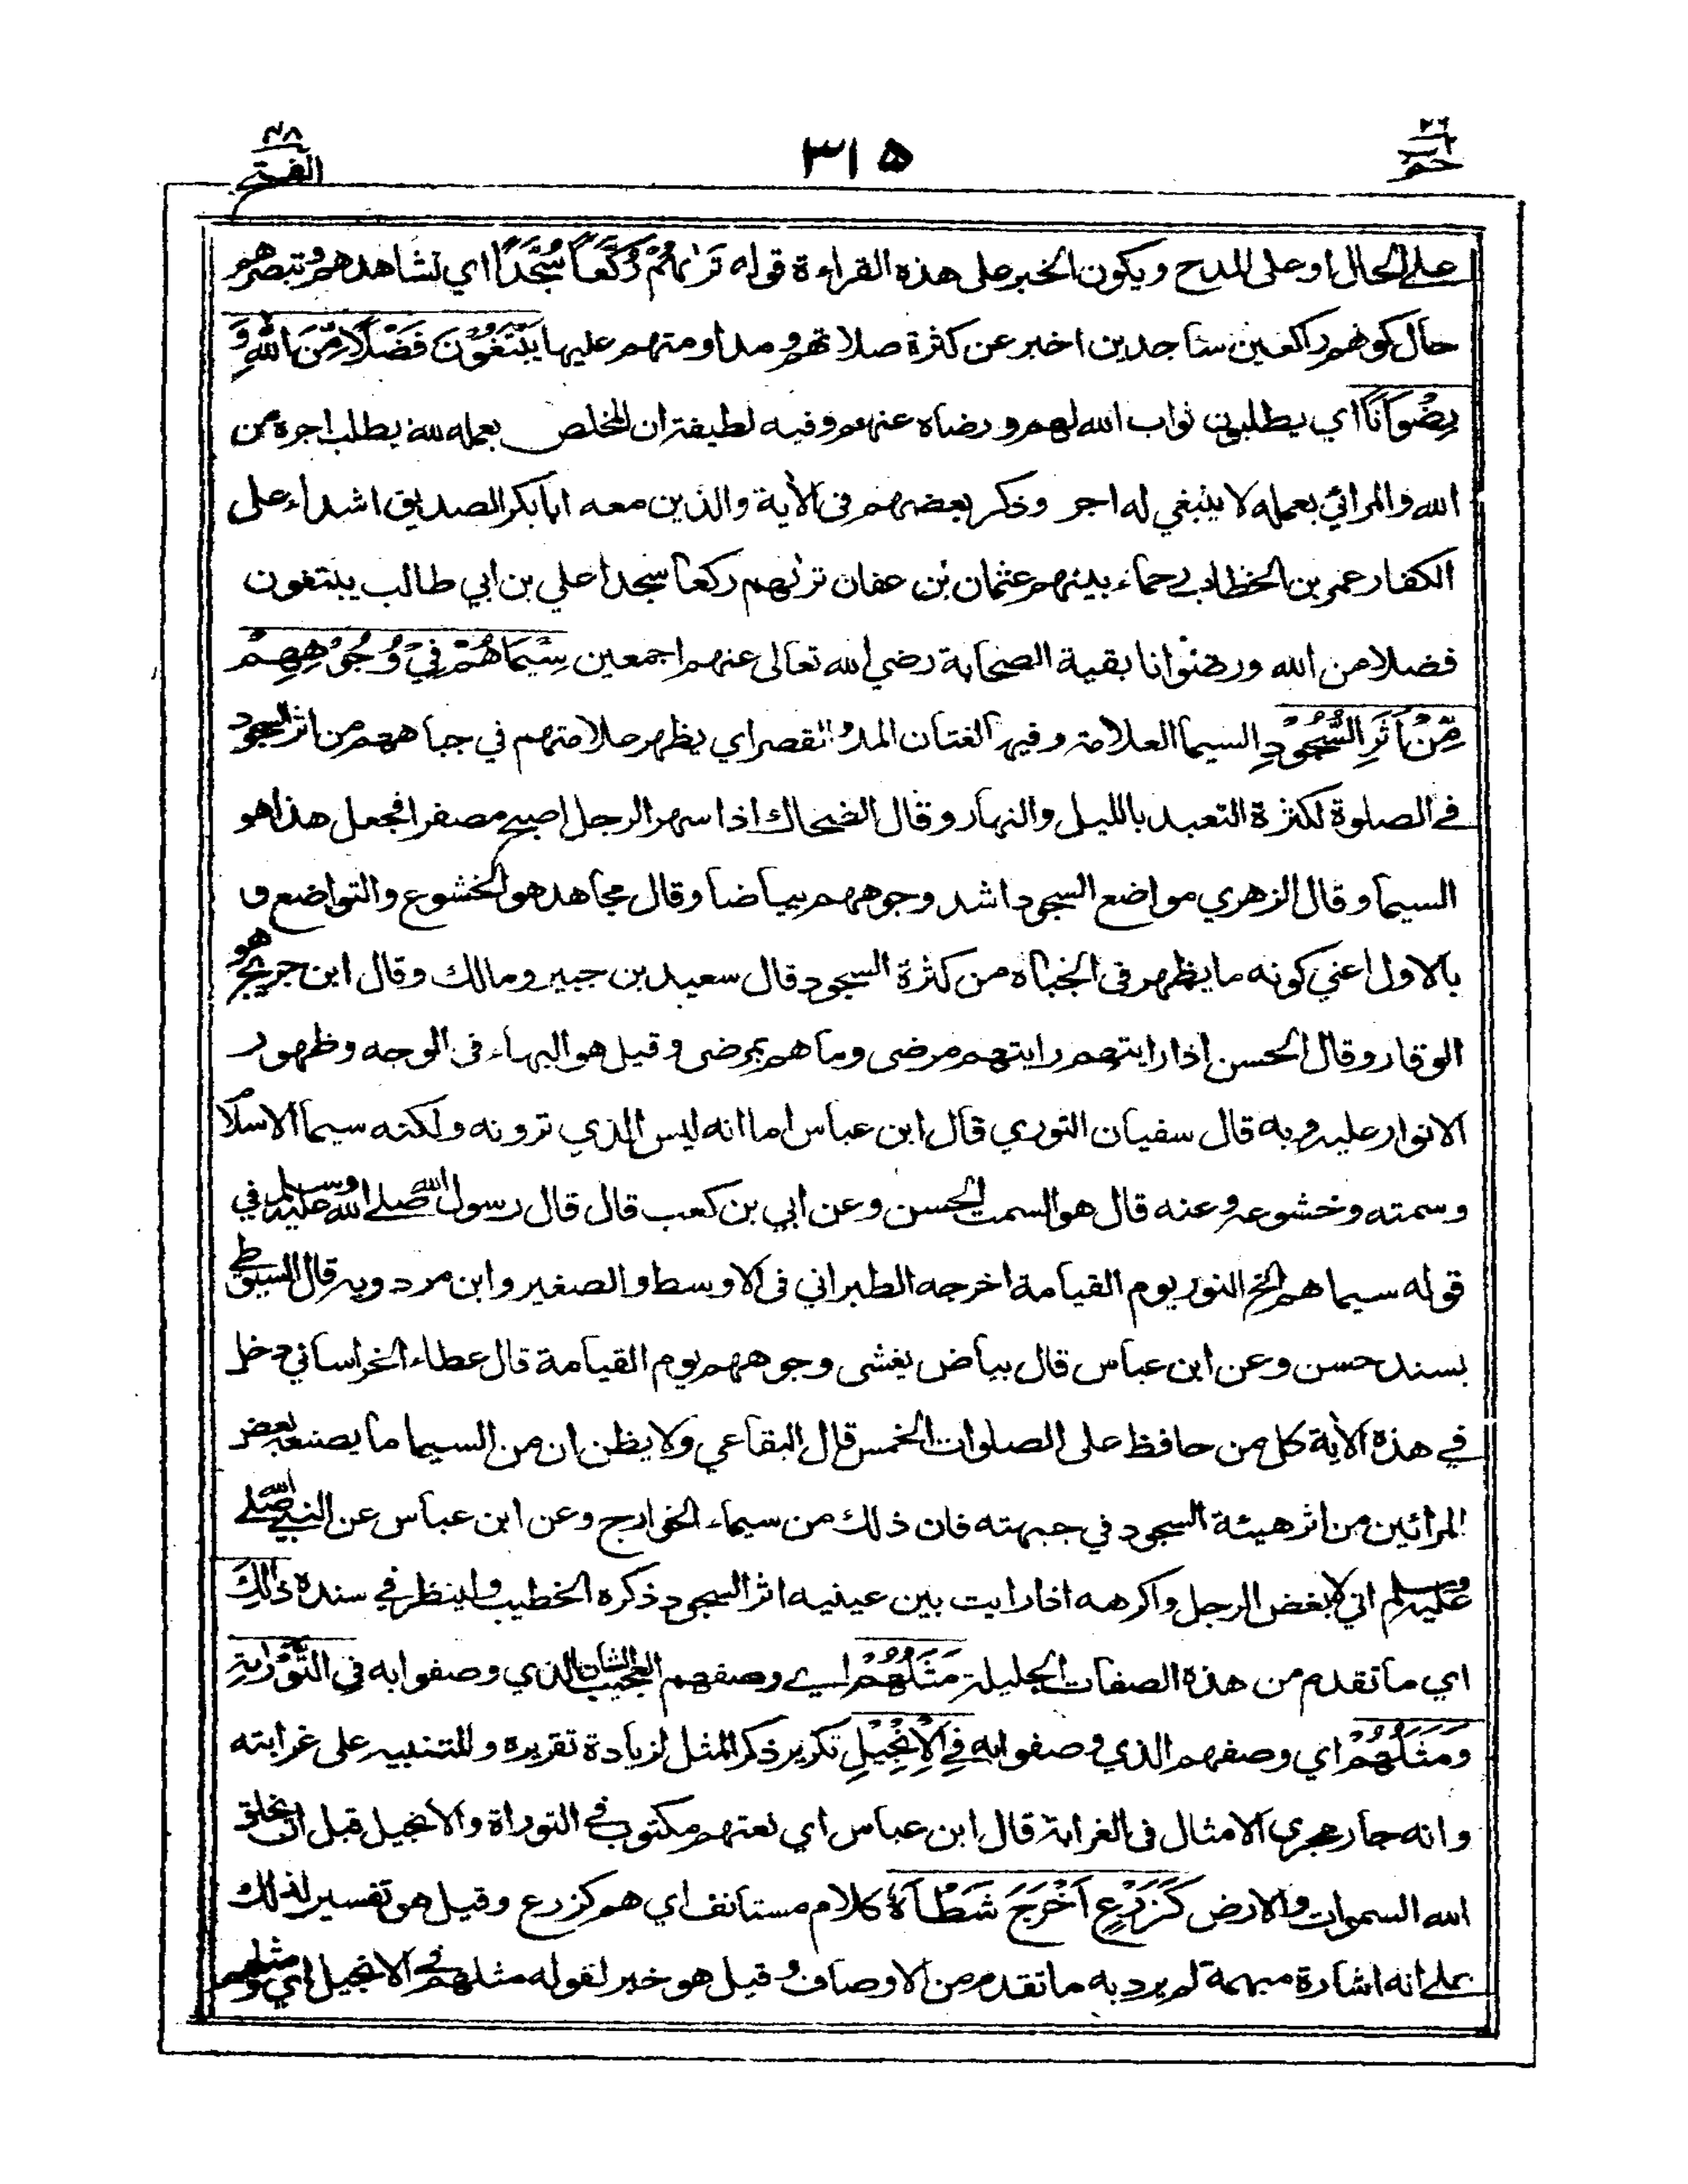 ٢٦ حم
٣١٥
٤٨ الفتح
على الحال او على المدح ويكون الخبر على هذه القراءة قوله تَرٰىهُمْ رُكَّعًا سُجَّدًا اي تشاهدهم وتبصرهم
حال كونهم راكعين ساجدين اخبر عن كثرة صلاتهم ومداومتهم عليها يَبْتَغُوْنَ فَضْلًا مِّنَ اللّٰهِ وَ
رِضْوَانًا اي يطلبون ثواب الله لهم ورضاه عنهم وفيه لطيفة ان المخلص بعمله لله يطلب اجره من
الله والمرائي بعمله لا ينبغي له اجر وذكر بعضهم في الأية والذين معه ابا بكر الصديق اشداء على
الكفار عمر بن الخطاب رحماء بينهم عثمان بن عفان ترٰىهم ركعا سجدا علي بن ابي طالب يبتغون
فضلا من الله ورضوانا بقية الصحابة رضي الله تعالى عنهم اجمعين سِيْمَاهُمْ فِيْ وُجُوْهِهِمْ
مِّنْ اَثَرِ السُّجُوْدِ السيما العلامة وفيها لغتان المد والقصر اي يظهر علامتهم في جباههم من اثر السجود
في الصلوة لكثرة التعبد بالليل والنهار وقال الضحاك اذا سهر الرجل اصبح مصفرا فجعل هذا هو
السيما وقال الزهري مواضع السجود اشد وجوههم بياضا وقال مجاهد هو الخشوع والتواضع و
بالاول اعني كونه ما يظهر في الجباه من كثرة السجود قال سعيد بن جبير ومالك وقال ابن جريج هو
الوقار وقال الحسن اذا رايتهم رايتهم مرضى وما هم بمرضى وقيل هو البهاء في الوجه وظهور
الانوار عليه وبه قال سفيان الثوري قال ابن عباس اما انه ليس الذي ترونه ولكنه سيما الاسلام
وسمته وخشوعه وعنه قال هو السمت الحسن وعن ابي بن كعب قال قال رسول الله صلى الله عليه وسلم في
قوله سيماهم الخ النور يوم القيامة اخرجه الطبراني في الاوسط والصغير وابن مردويه قال السيوطي
بسند حسن وعن ابن عباس قال بياض يغشى وجوههم يوم القيامة قال عطاء الخراساني دخل
في هذه الأية كل من حافظ على الصلوات الخمس قال البقاعي ولا يظن ان من السيما ما يصنعه بعض
المرائين من اثر هيئة السجود في جبهته فان ذلك من سيماء الخوارج وعن ابن عباس عن النبي صلى
عليه وسلم اني لابغض الرجل واكرهه اذا رايت بين عينيه اثر السجود ذكره الخطيب ولينظر في سنده ذٰلِكَ
اي ما تقدم من هذه الصفات الجليلة مَثَلُهُمْ اي وصفهم العجيب الشان الذي وصفوا به في التَّوْرٰىةِ
وَمَثَلُهُمْ اي وصفهم الذي وصفوا به فِي الْاِنْجِيْلِ تكرير ذكر المثل لزيادة تقريره وللتنبيه على غرابته
وانه جار مجرى الامثال في الغرابة قال ابن عباس اي نعتهم مكتوب في التوراة والأنجيل قبل ان يخلق
الله السموات والارض كَزَرْعٍ اَخْرَجَ شَطْاَهٗ كلام مستانف اي هم كزرع وقيل هو تفسير لذلك
على انه اشارة مبهمة لم يرد به ما تقدم من الاوصاف وقيل هو خبر لقوله مثلهم في الانجيل اي ومثلهم